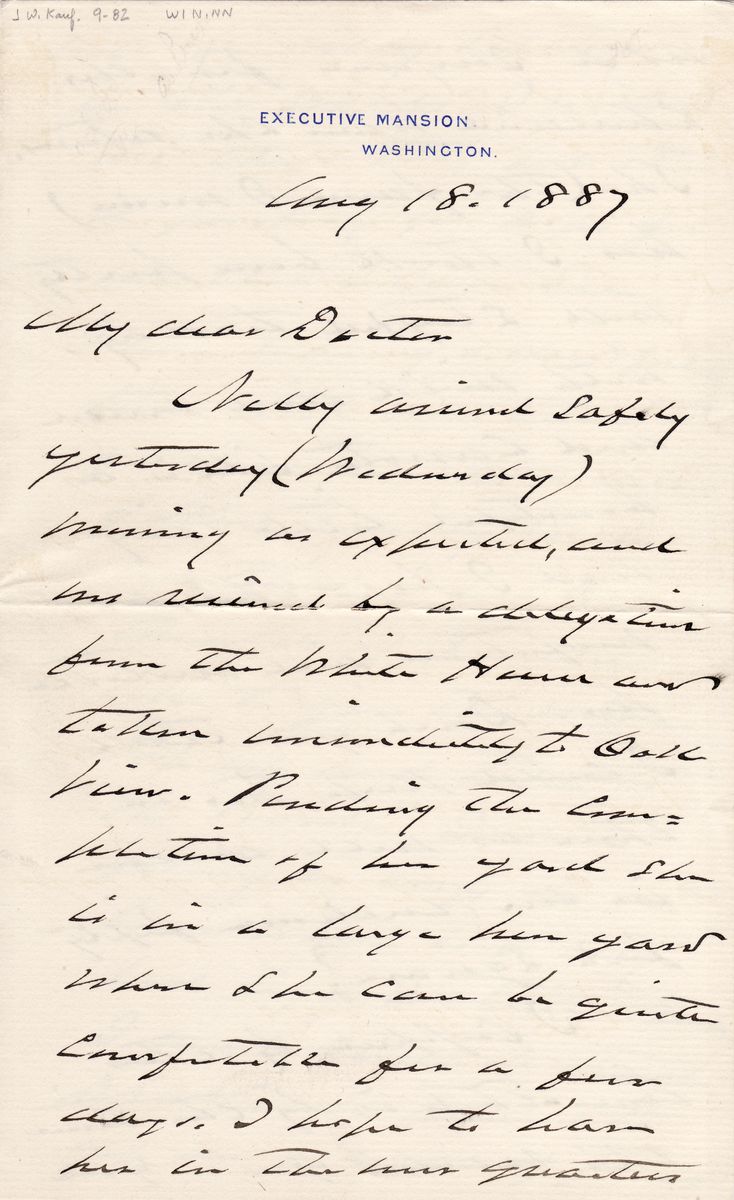 J. W. Kauf. 9-82 WININN
EXECUTIVE MANSION.
WASHINGTON.
Aug 18. 1887
My dear Doctor
Nelly arrived safely
yesterday (Wednesday)
morning as expected, and
was received by a delegation
from the White House and
taken immediately to Oak
View. Pending the com=
pletion of her yard she
is in a large hen yard
where she can be quite
comfortable for a few
days. I hope to have
her in the new quarters